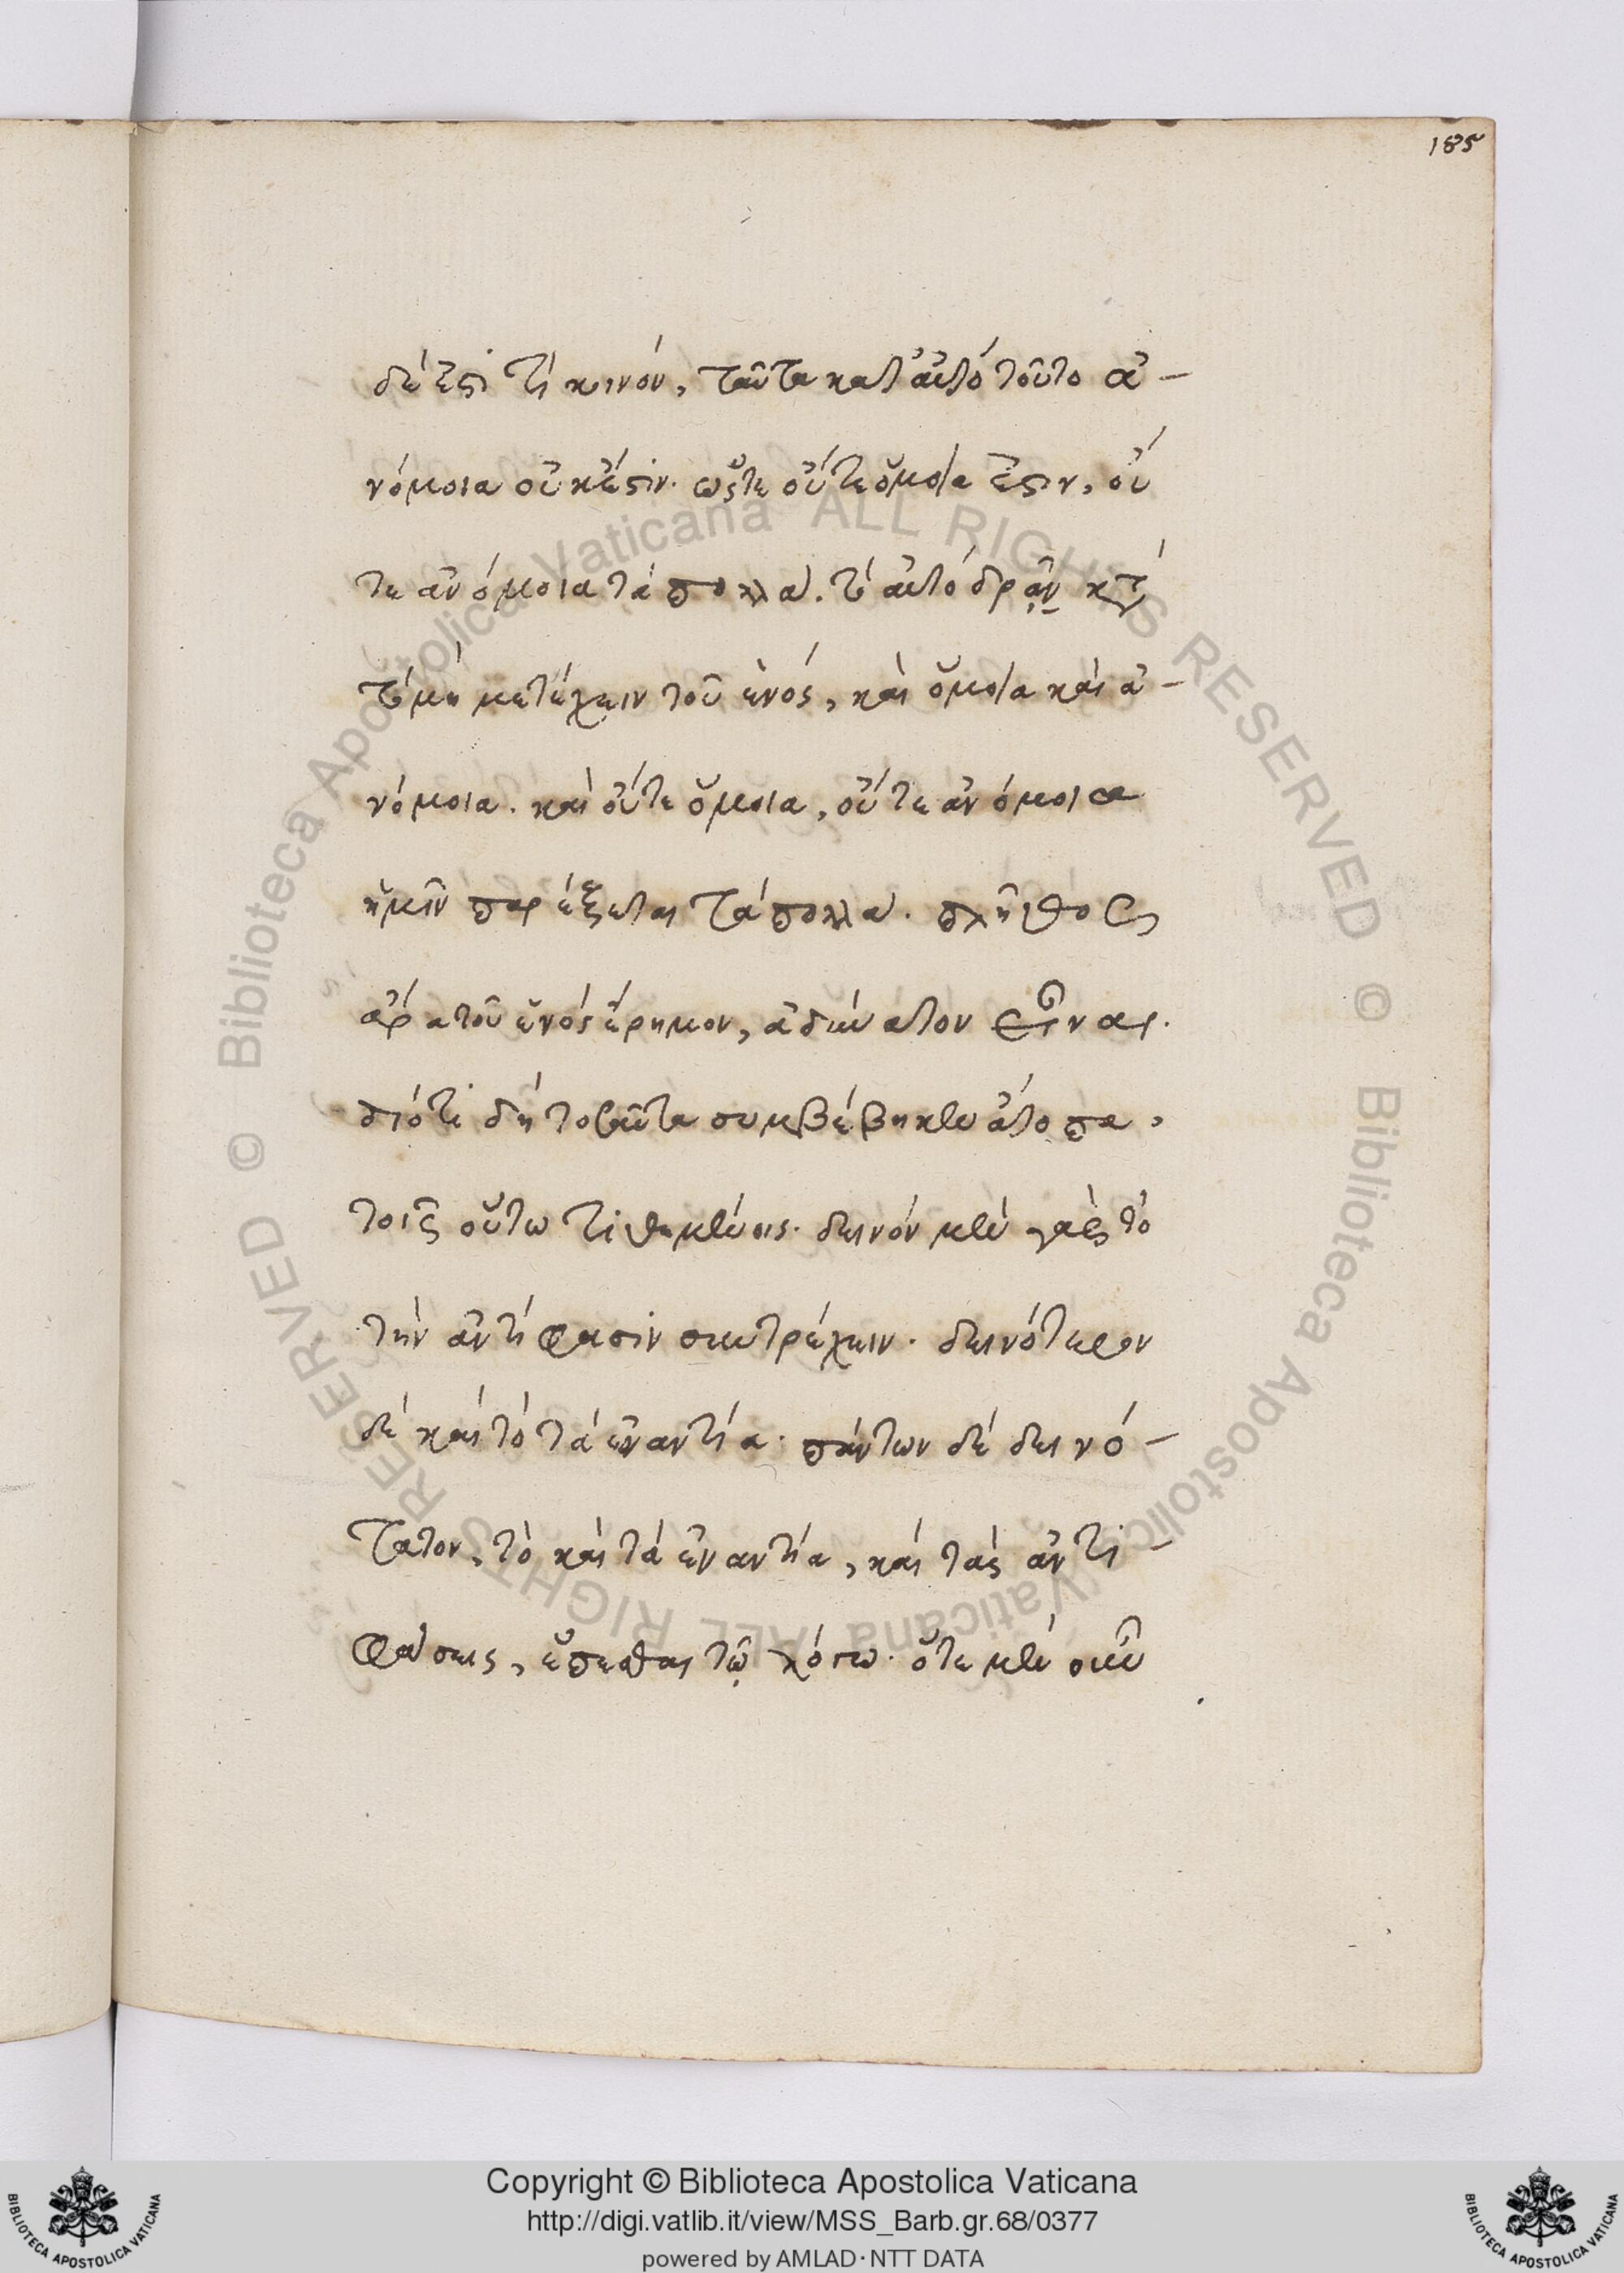 185
δέ ἐστί τί κοινόν, ταῦτα κατ' αὐτό τοῦτο ἀ-
νόμοια οὐκ ἔστιν. ὥστε οὔτε ὅμοιά ἐστιν, οὔ
τε ἀνόμοια τά πολλά. τό αὐτό δρᾶν κατά
τό μή μετέχειν τοῦ ἑνός, καὶ ὅμοια καὶ ἀ-
νόμοια. καὶ οὔτε ὅμοια, οὔτε ἀνόμοια
ἡμῖν παρέξεται τά πολλά. πλῆθος
ἄρα τοῦ ἑνός ἔρημον, ἀδύνατον εἶναι.
διότι δή τοσαῦτα συμβέβηκεν ἄτοπα,
τοῖς οὕτω τιθεμένοις. δεινόν μέν γάρ τό
τήν ἀντίφασιν συντρέχειν. δεινότερον
δέ καί τό τά ἐναντία. πάντων δέ δεινό-
τατον, τὸ καὶ τά ἐναντία, καί τάς ἀντι-
φάσεις, ἕπεσθαι τῷ λόγῳ. ὅτε μέν οὖν
Copyright © Biblioteca Apostolica Vaticana
http://digi.vatlib.it/view/MSS_Barb.gr.68/0377
powered by AMLAD·NTT DATA
BIBLIOTECA APOSTOLICA VATICANA
BIBLIOTECA APOSTOLICA VATICANA
© Biblioteca Apostolica Vaticana ALL RIGHTS RESERVED
© Biblioteca Apostolica Vaticana ALL RIGHTS RESERVED